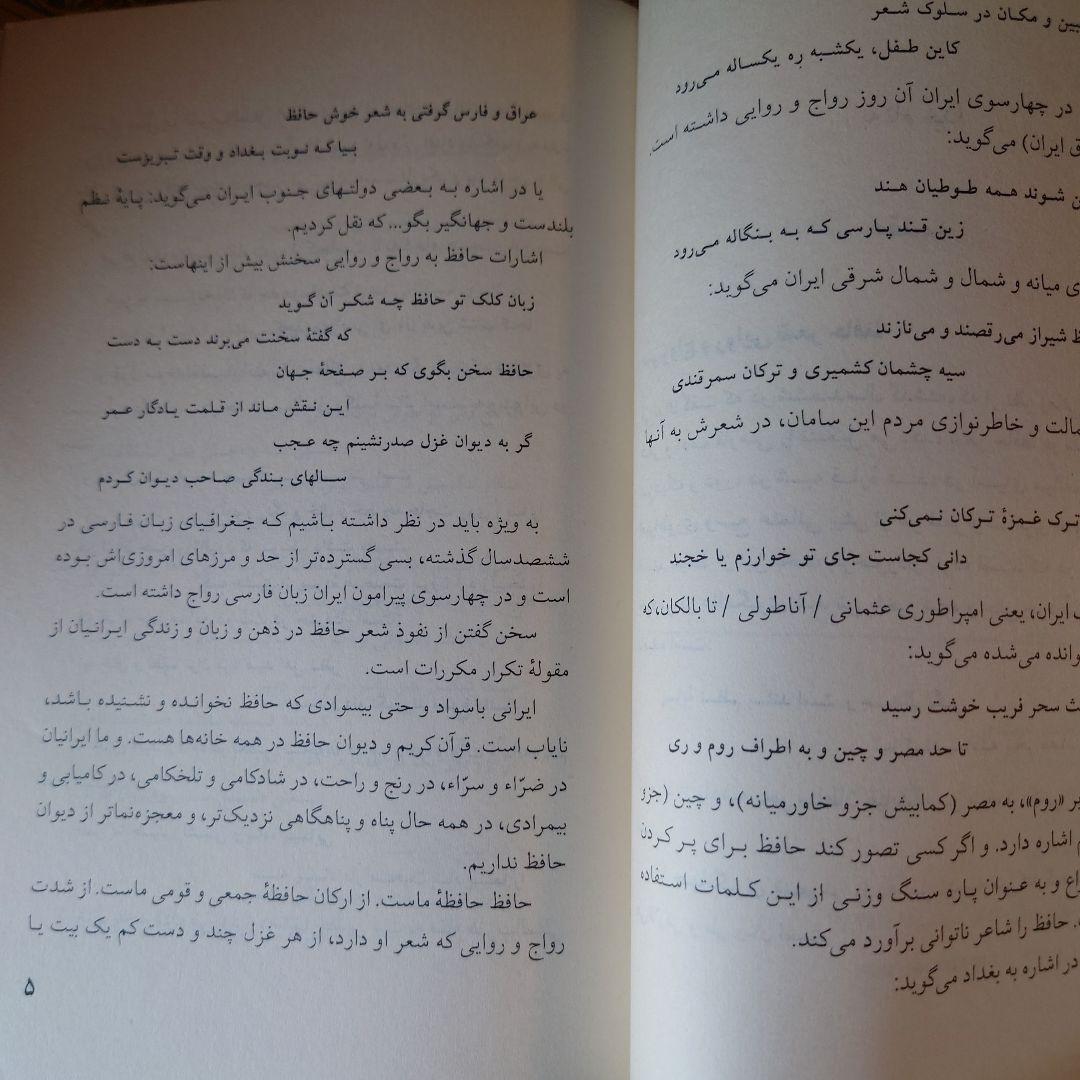 بین و مکان در سلوک شعر
کاین طفل، یکشبه رِه یکساله می‌رود
در چهارسوی ایران آن روز رواج و روایی داشته است.
ق ایران) می‌گوید:
شوند همه طوطیان هند
زین قند پارسی که به بنگاله می‌رود
ی میانه و شمال و شمال شرقی ایران می‌گوید:
شیراز می‌رقصند و می‌نازند
سیه چشمان کشمیری و ترکان سمرقندی
مالت و خاطرنوازی مردم این سامان، در شعرش به آنها
ترک غمزهٔ ترکان نمی‌کنی
دانی کجاست جای تو خوارزم یا خجند
ایران، یعنی امپراطوری عثمانی / آناطولی / تا بالکان،که
وانده می‌شده می‌گوید:
ث سحر فریب خوشت رسید
تا حد مصر و چین و به اطراف روم و ری
بر «روم»، به مصر (کمابیش جزو خاورمیانه)، و چین (جزو
اشاره دارد. و اگر کسی تصور کند حافظ برای پر کردن
اع و به عنوان پاره سنگ وزنی از این کلمات استفاده
حافظ را شاعر ناتوانی برآورد می‌کند.
در اشاره به بغداد می‌گوید:
عراق و فارس گرفتی به شعر خوش حافظ
بیا که نوبت بغداد و وقت تبریزست
یا در اشاره به بعضی دولتهای جنوب ایران می‌گوید: پایهٔ نظم
بلندست و جهانگیر بگو... که نقل کردیم.
اشارات حافظ به رواج و روایی سخنش بیش از اینهاست:
زبان کلک تو حافظ چه شکر آن گوید
که گفتهٔ سخنت می‌برند دست به دست
حافظ سخن بگوی که بر صفحهٔ جهان
این نقش ماند از قلمت یادگار عمر
گر به دیوان غزل صدرنشینم چه عجب
سالهای بندگی صاحب دیوان کردم
به ویژه باید در نظر داشته باشیم که جغرافیای زبان فارسی در
ششصدسال گذشته، بسی گسترده‌تر از حد و مرزهای امروزی‌اش بوده
است و در چهارسوی پیرامون ایران زبان فارسی رواج داشته است.
سخن گفتن از نفوذ شعر حافظ در ذهن و زبان و زندگی ایرانیان از
مقولهٔ تکرار مکررات است.
ایرانی باسواد و حتی بیسوادی که حافظ نخوانده و نشنیده باشد،
نایاب است. قرآن کریم و دیوان حافظ در همه خانه‌ها هست. و ما ایرانیان
در ضرّاء و سرّاء، در رنج و راحت، در شادکامی و تلخکامی، در کامیابی و
بیمرادی، در همه حال پناه و پناهگاهی نزدیک‌تر، و معجزه‌نماتر از دیوان
حافظ نداریم.
حافظ حافظهٔ ماست. از ارکان حافظهٔ جمعی و قومی ماست. از شدت
رواج و روایی که شعر او دارد، از هر غزل چند و دست کم یک بیت یا
۵